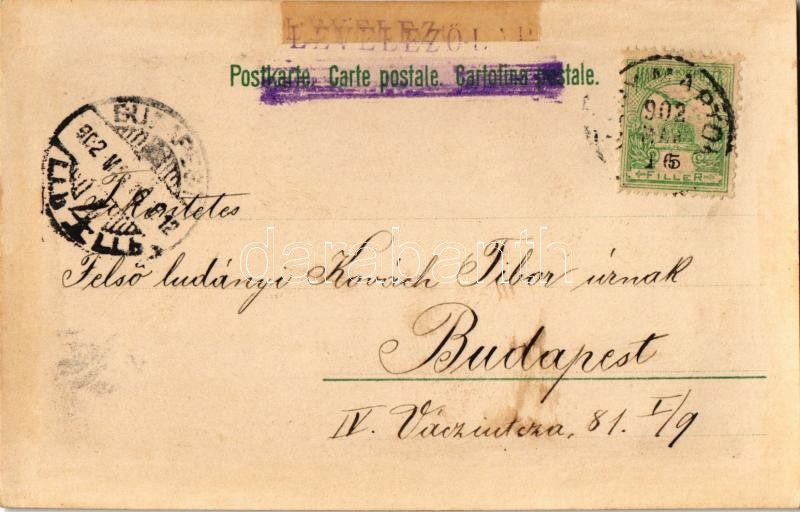 LEVELEZŐLAP
Postkarte. Carte postale. Cartolina postale.
902
6
FILLER
Tekintetes
Felső ludányi Kovách Tibor úrnak
Budapest
IV. Vácziutcza, 81. I/9
darabanth